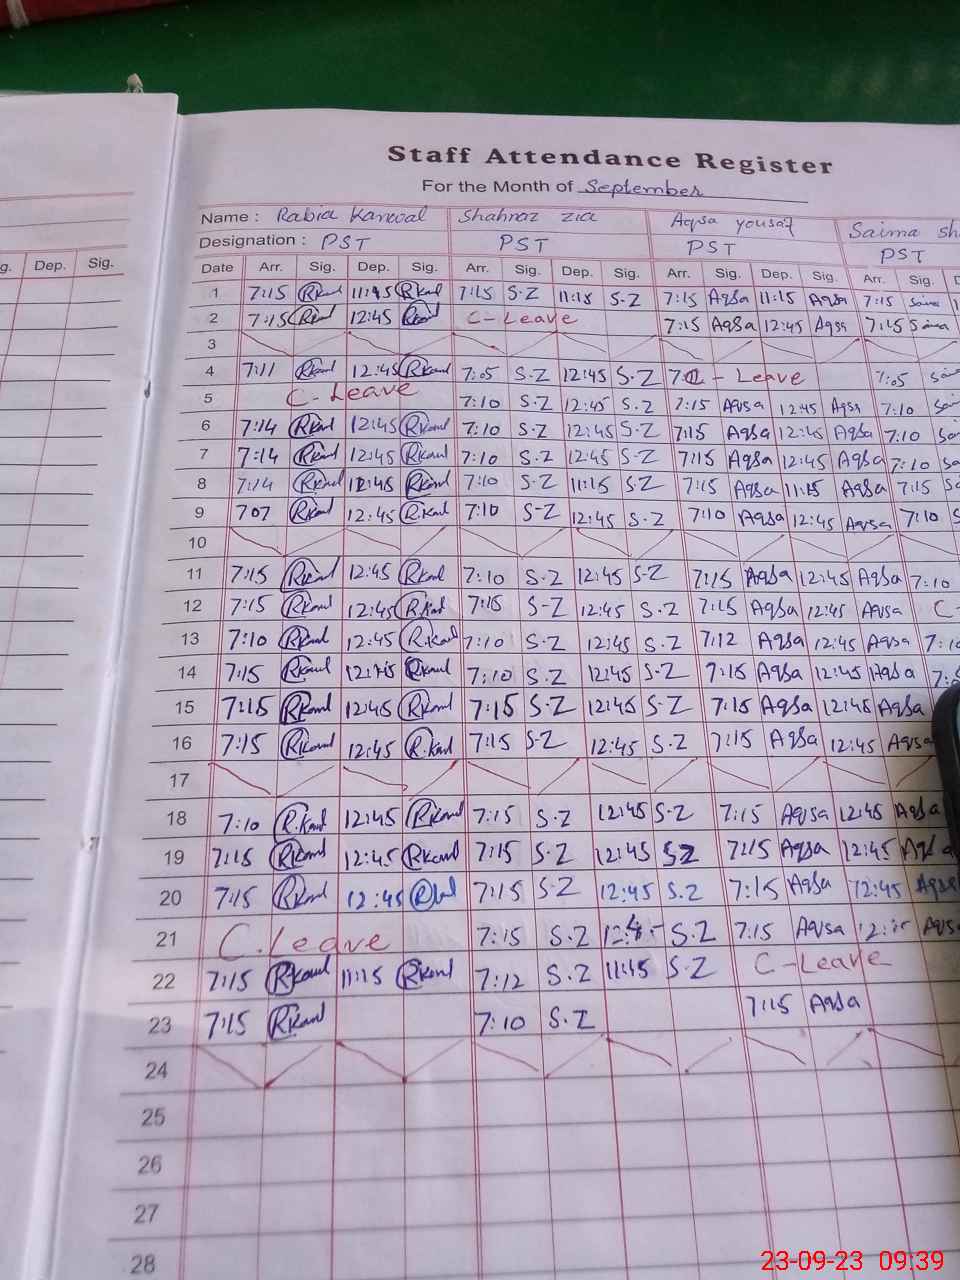 Staff Attendance Register
For the Month of September
Name : Rabia Kanwal Shahnaz zia Aqsa yousaf Saima sh
Designation : PST PST PST PST
g. Dep. Sig. Date Arr. Sig. Dep. Sig. Arr. Sig. Dep. Sig. Arr. Sig. Dep. Sig. Arr. Sig. D
1 7:15 RKanl 11:45 RKanl 7:15 S.Z 11:15 S.Z 7:15 AqSa 11:15 Aqsa 7:15
2 7:15 12:45 C-Leave 7:15 AqSa 12:45 Aqsa 7:15 Saima
3
4 7:11 12:45 RKanl 7:05 S.Z 12:45 S.Z C - Leave 7:05
5 C-Leave 7:10 S.Z 12:45 S.Z 7:15 Aqsa 12:45 Aqsa 7:10
6 7:14 RKanl 12:45 RKanl 7:10 S-Z 12:45 S-Z 7:15 AqSa 12:45 AqSa 7:10 Sa
7 7:14 RKanl 12:45 RKanl 7:10 S-Z 12:45 S-Z 7:15 AqSa 12:45 AqSa 7:10 Sa
8 7:14 RKanl 12:45 RKanl 7:10 S-Z 11:15 S.Z 7:15 AqSa 11:15 AqSa 7:15 Sa
9 707 RKanl 12:45 R.Kanl 7:10 S-Z 12:45 S.Z 7:10 AqSa 12:45 Aqsa 7:10 S
10
11 7:15 RKanl 12:45 RKanl 7:10 S.Z 12:45 S-Z 7:15 AqSa 12:45 AqSa 7:10
12 7:15 RKanl 12:45 R.Kanl 7:15 S-Z 12:45 S.Z 7:15 AqSa 12:45 Aqsa C-
13 7:10 RKanl 12:45 R.Kanl 7:10 S.Z 12:45 S.Z 7:12 AqSa 12:45 AqSa 7:10
14 7:15 RKanl 12:45 RKanl 7:10 S.Z 12:45 S.Z 7:15 AqSa 12:45 AqSa
15 7:15 RKanl 12:45 RKanl 7:15 S-Z 12:45 S-Z 7:15 AqSa 12:45 AqSa
16 7:15 RKanl 12:45 R.Kanl 7:15 S-Z 12:45 S.Z 7:15 AqSa 12:45 Aqsa
17
18 7:10 R.Kanl 12:45 RKanl 7:15 S.Z 12:45 S-Z 7:15 Aqsa 12:45 AqSa
19 7:15 RKanl 12:45 RKanl 7:15 S.Z 12:45 SZ 7:15 Aqsa 12:45
20 7:15 RKanl 12:45 7:15 S-Z 12:45 S.Z 7:15 AqSa 12:45 Aqsa
21 C.Leave 7:15 S.Z S.Z 7:15 Aqsa
22 7:15 RKanl 11:15 RKanl 7:12 S.Z 11:45 S.Z C-Leave
23 7:15 RKanl 7:10 S.Z 7:15 AqSa
24
25
26
27
28
23-09-23 09:39